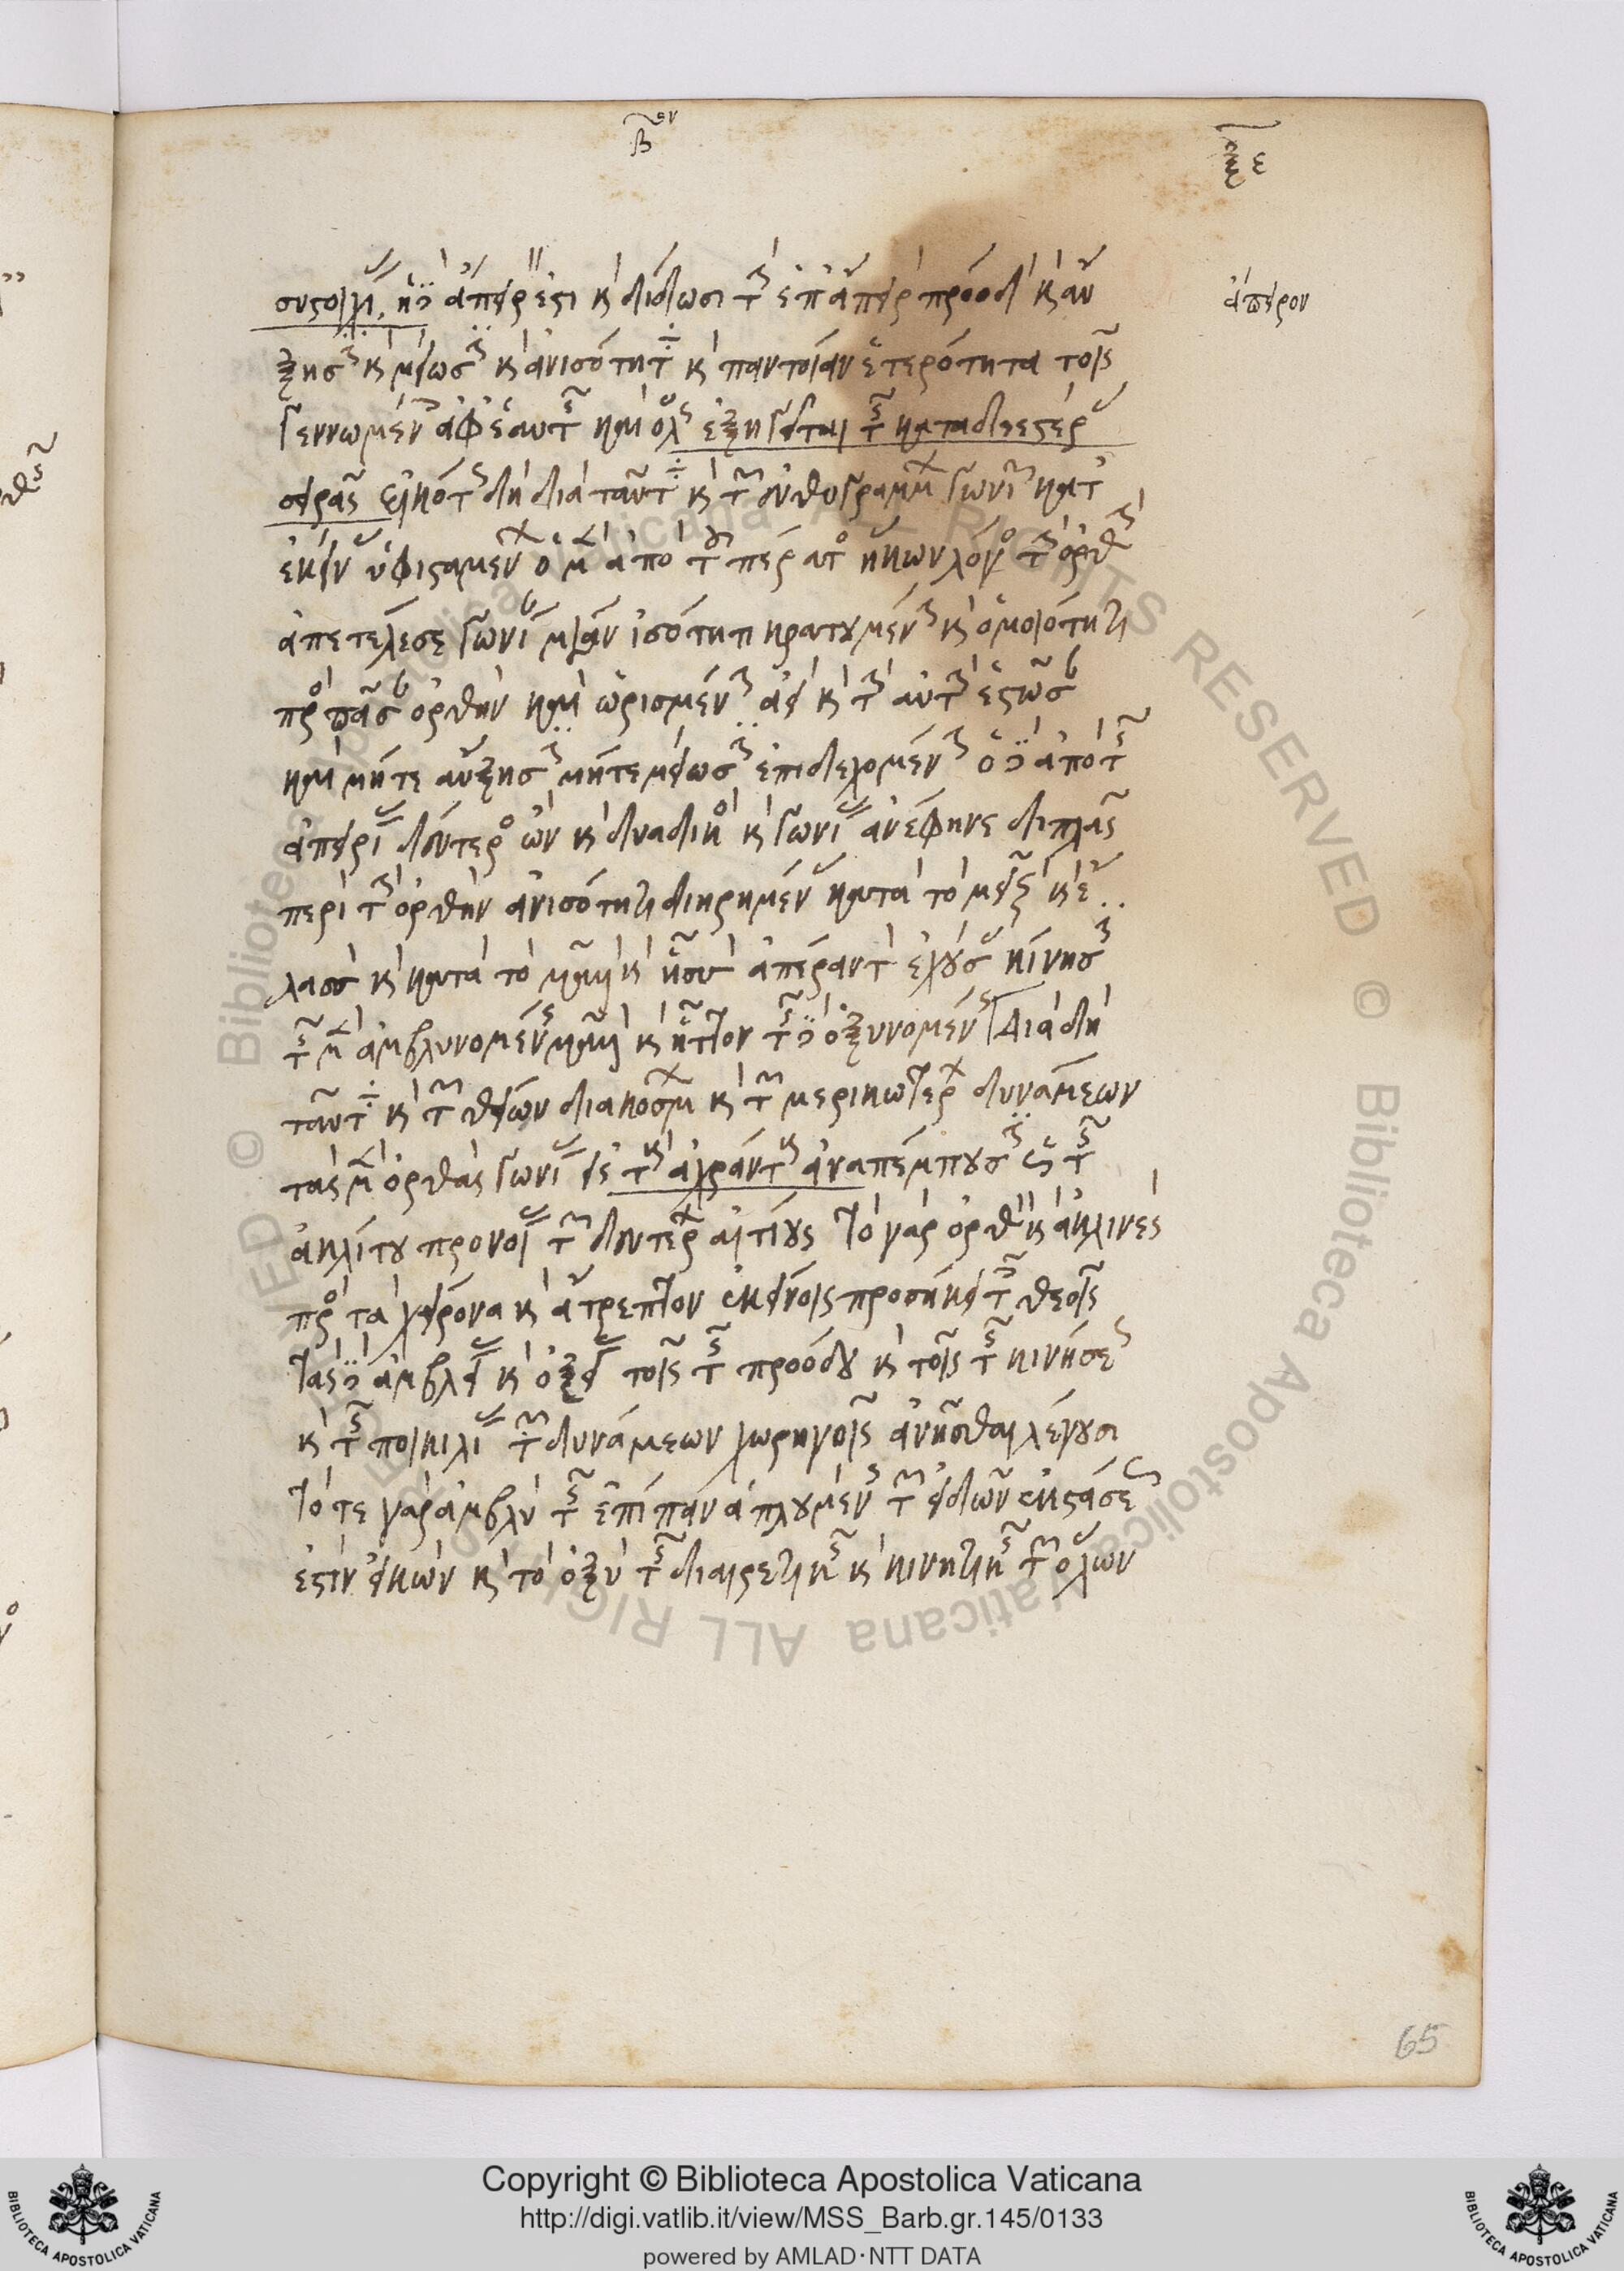 βον
ξε
συστοιχίας, ἡ δὲ ἄπειρός ἐστι καὶ δίδωσι τὴν ἐπ' ἄπειρον πρόοδον καὶ αὔ
ἄπειρον
ξησιν καὶ μείωσιν καὶ ἀνισότητα καὶ παντοίαν ἑτερότητα τοῖς
γεννωμένοις ἀφ' ἑαυτῆς καὶ ὅλως ἐξηγεῖται τῆς καταδεεστέρας
σειρᾶς εἰκότως δὴ διὰ ταῦτα καὶ τῶν εὐθυγράμμων γωνιῶν κατ'
ἐκείνας ὑφισταμένων ὁ μὲν ἀπὸ τοῦ πέρατος ἥκων λόγος τὴν ὀρθὴν
ἀπετέλεσε γωνίαν μίαν ἰσότητι κρατουμένην καὶ ὁμοιότητι
πρὸς πᾶσαν ὀρθὴν καὶ ὡρισμένην ἀεὶ καὶ τὴν αὐτὴν ἑστῶσαν
καὶ μήτε αὔξησιν μήτε μείωσιν ἐπιδεχομένην ὁ δὲ ἀπὸ τῆς
ἀπειρίας δεύτερος ὢν καὶ δυαδικὸς καὶ γωνίας ἀνέφηνε διπλᾶς
περὶ τὴν ὀρθὴν ἀνισότητι διῃρημένας κατὰ τὸ μεῖζον καὶ ἔ..
λασσον καὶ κατὰ τὸ μᾶλλον καὶ ἧσσον ἀπέραντον ἐχούσας κίνησιν
τῆς μὲν ἀμβλυνομένης μᾶλλον καὶ ἧττον τῆς δὲ ὀξυνομένης Διὰ δὴ
ταῦτα καὶ τῶν θείων διακόσμων καὶ τῶν μερικωτέρων δυνάμεων
τὰς μὲν ὀρθὰς γωνίας εἰς τοὺς ἀχράντους ἀναπέμπουσιν ὡς τῆς
ἀκλίτου προνοίας τῶν δευτέρων αἰτίους τὸ γὰρ ὀρθὸν καὶ ἀκλινὲς
πρὸς τὰ χείρονα καὶ ἄτρεπτον ἐκείνοις προσήκει τοῖς θεοῖς
τὰς δὲ ἀμβλείας καὶ ὀξείας τοῖς τῆς προόδου καὶ τοῖς τῆς κινήσεως
καὶ τῆς ποικιλίας τῶν δυνάμεων χωρηγοῖς ἀνῆσθαι λέγουσι
τό τε γὰρ ἀμβλὺ τῆς ἐπὶ πᾶν ἁπλουμένης τῶν εἰδῶν ἐκστάσεως
ἐστὶν εἰκὼν καὶ τὸ ὀξὺ τῆς διαιρετικῆς καὶ κινητικῆς τῶν ὅλων
65
© Biblioteca Apostolica Vaticana ALL RIGHTS RESERVED © Biblioteca Apostolica Vaticana ALL RIGHTS RESERVED
Copyright © Biblioteca Apostolica Vaticana
http://digi.vatlib.it/view/MSS_Barb.gr.145/0133
powered by AMLAD·NTT DATA
BIBLIOTECA APOSTOLICA VATICANA
BIBLIOTECA APOSTOLICA VATICANA